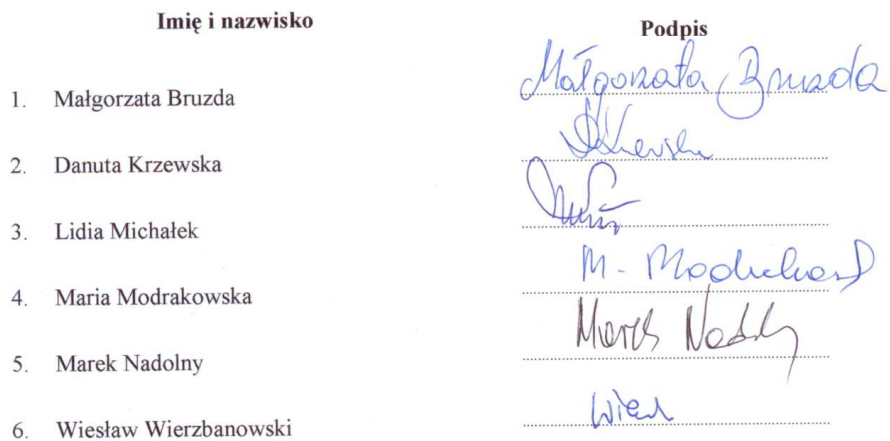 Imię i nazwisko Podpis
1. Małgorzata Bruzda Małgorzata Bruzda
2. Danuta Krzewska
3. Lidia Michałek
4. Maria Modrakowska M.
5. Marek Nadolny Marek
6. Wiesław Wierzbanowski